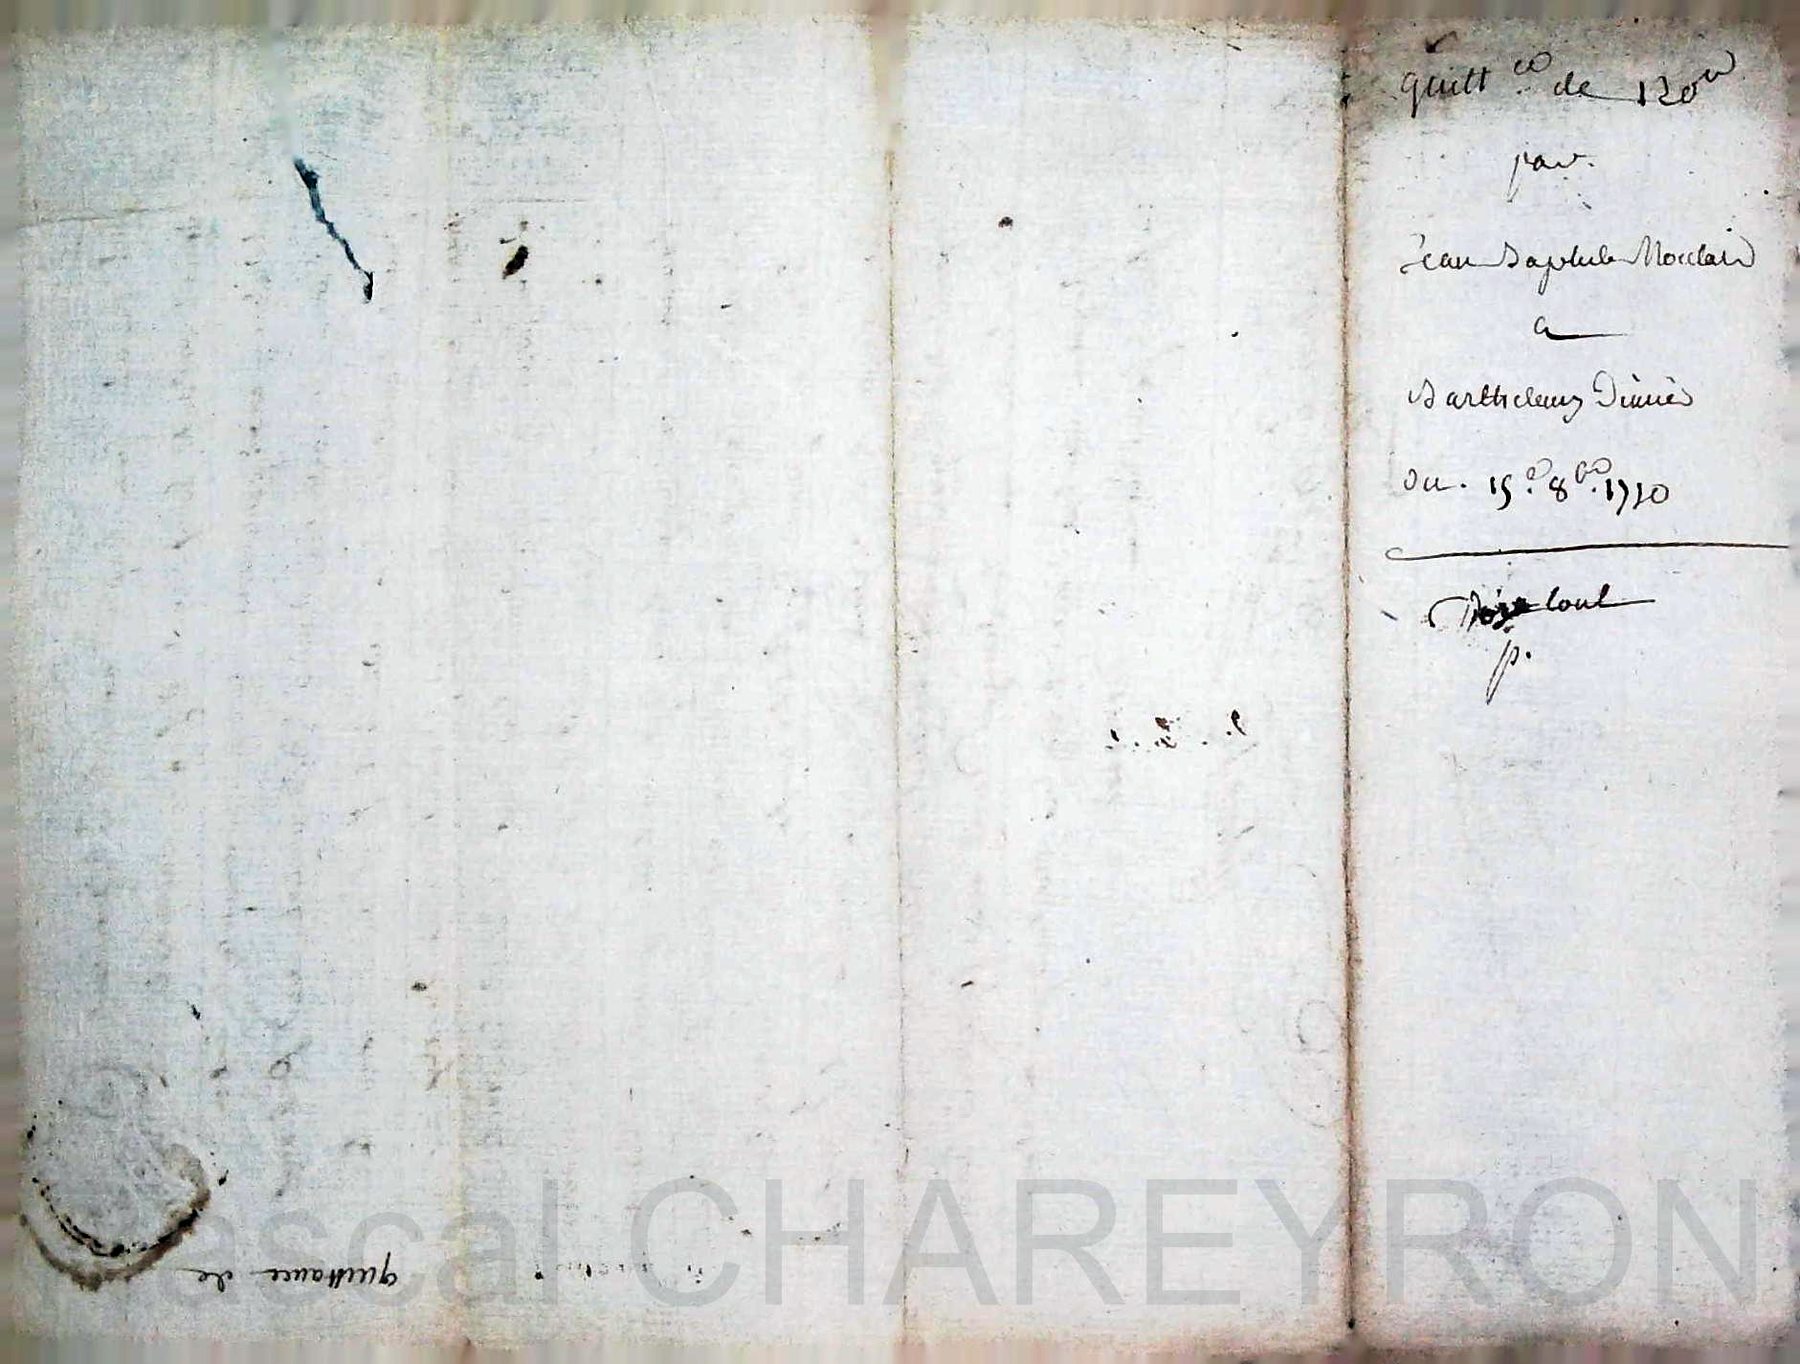 quitt.ce de 120#
par.
jean Baptiste Monclair
a
Barthelemy
du. 15.e 8bre. 1710
p.
quittance de
Pascal CHAREYRON